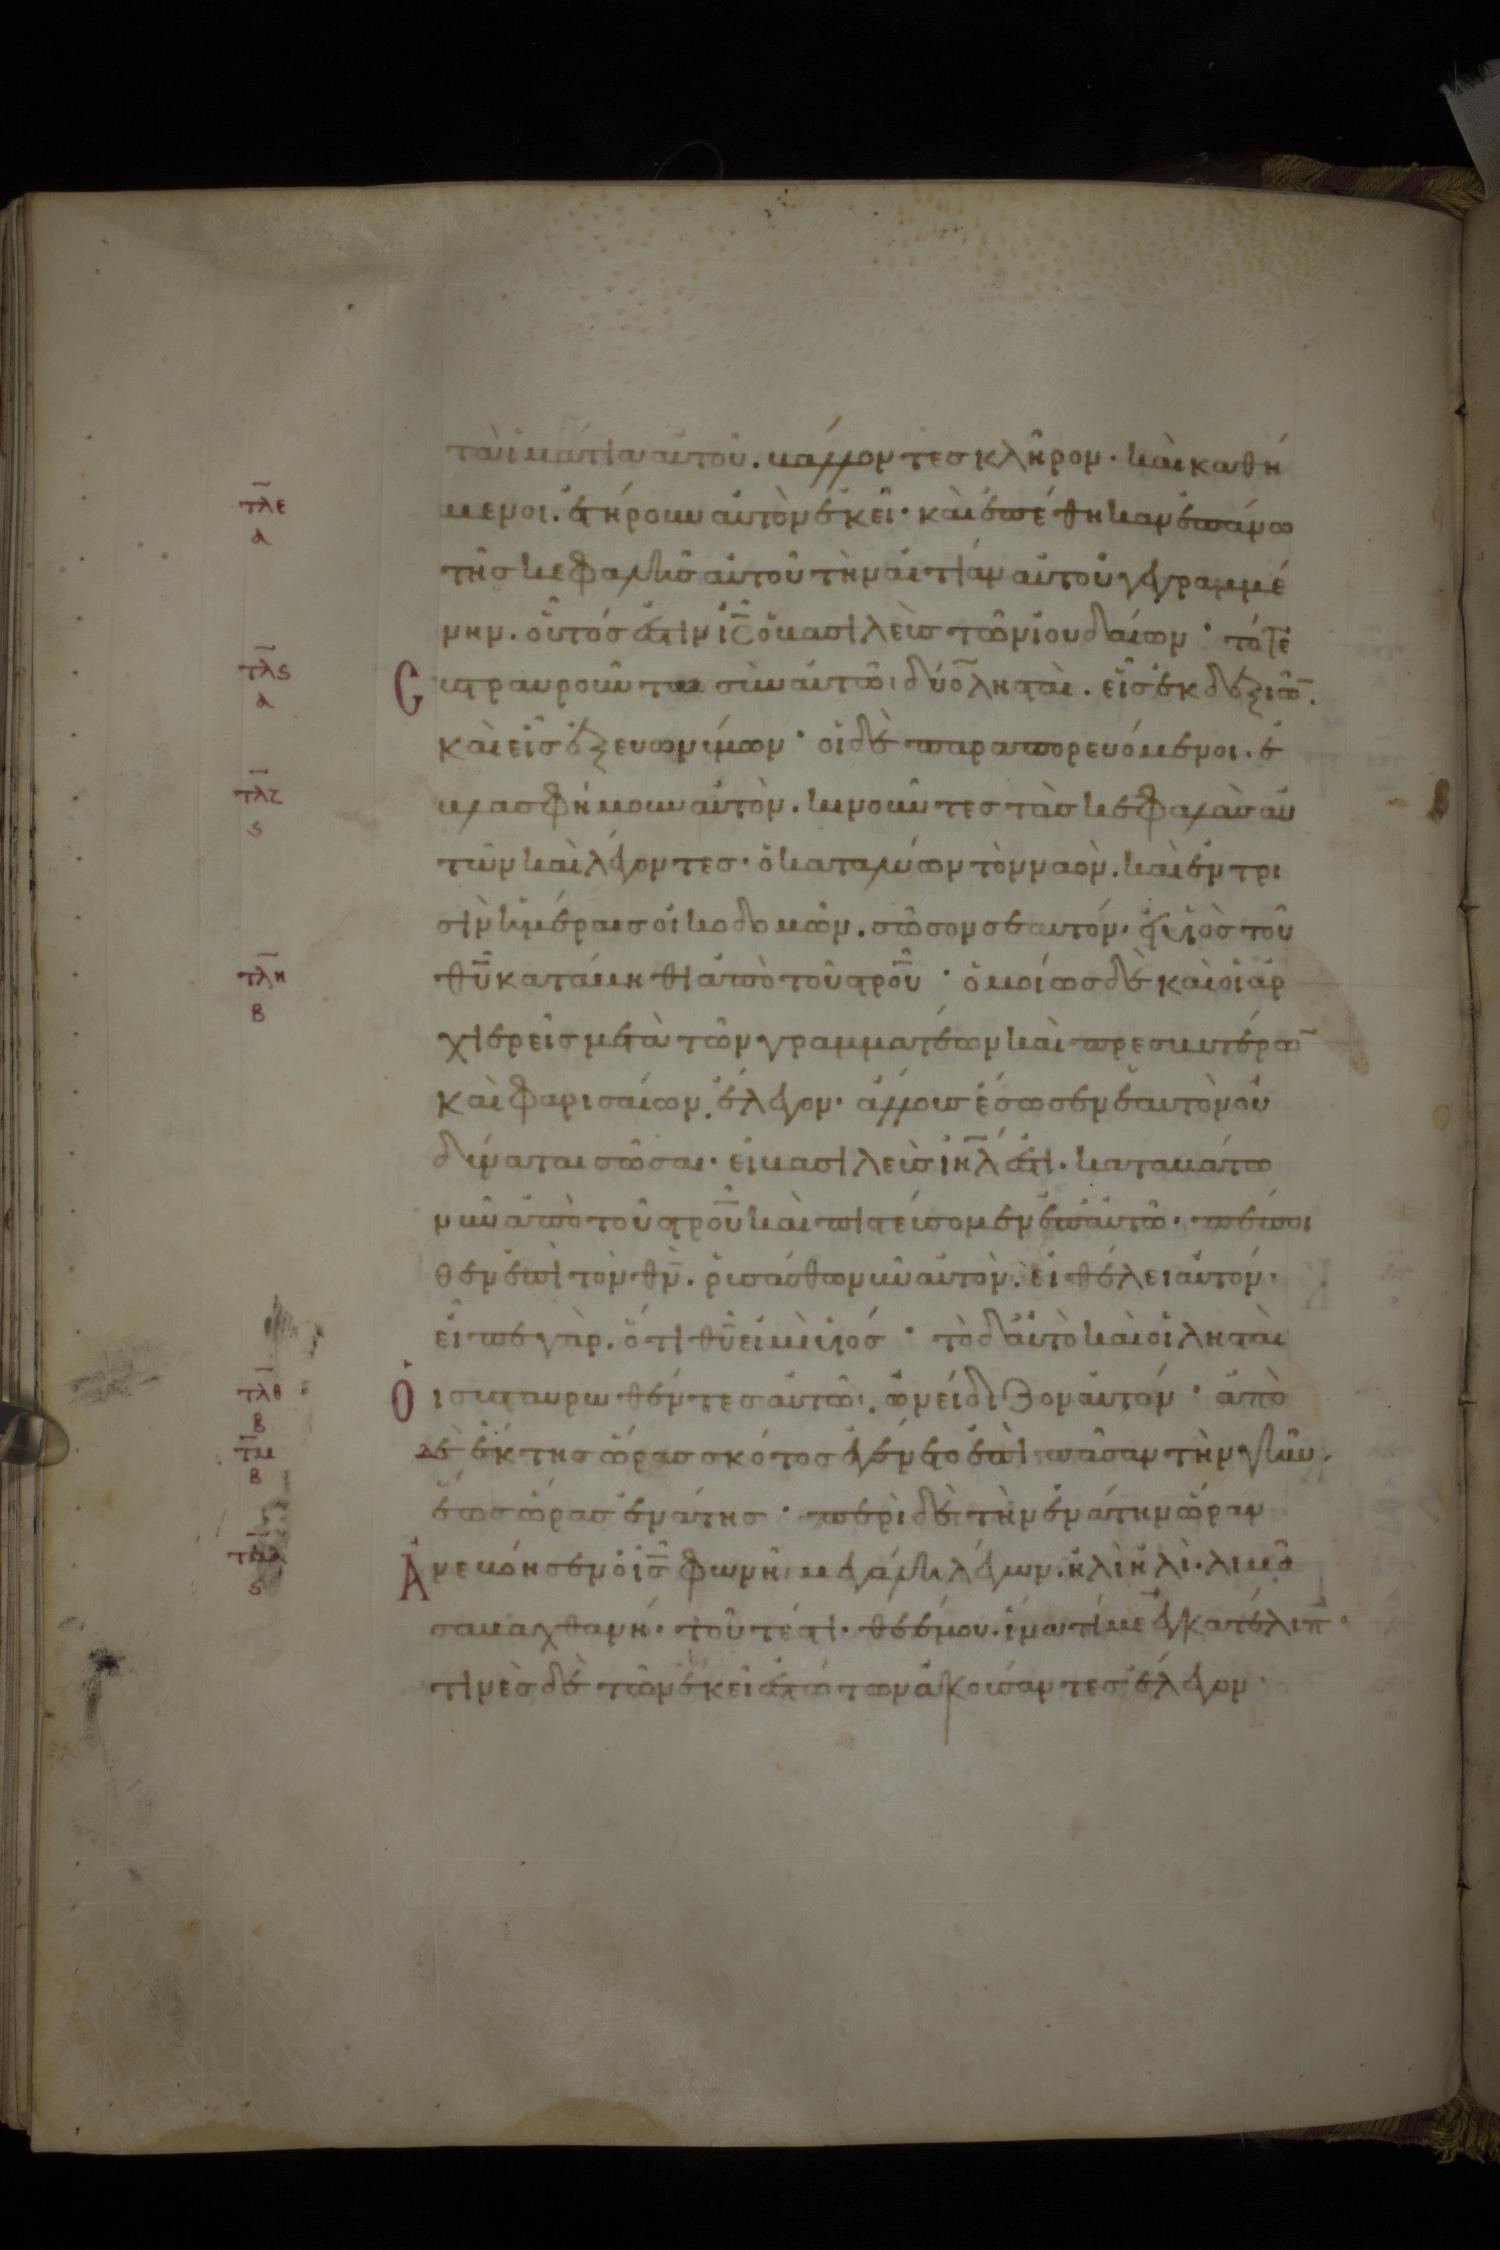 τὰ ἱμάτια αὐτοῦ. βάλλοντες κλῆρον· καὶ καθή
τλε μενοι. ἐτήρουν αὐτὸν ἐκεῖ· καὶ ἐπέθηκαν ἐπάνω
α
τῆς κεφαλῆς αὐτοῦ τὴν αἰτίαν αὐτοῦ γεγραμμέ
νην. οὗτός ἐστιν ι̅ς̅ ὁ βασιλεὺς τῶν ἰουδαίων· τότε
τλϛ Cταυροῦνται σὺν αὐτῶ δύο λησταὶ. εἷς ἐκ δεξιῶ̅.
α
καὶ εἷς ἐξ εὐωνύμων· οἱ δὲ παραπορευόμενοι. ἐ
τλζ βλασφήμουν αὐτὸν. κινοῦντες τὰς κεφαλὰς αὐ
ϛ
τῶν καὶ λέγοντες· ὁ καταλύων τὸν ναὸν. καὶ ἐν τρι
σὶν ἡμέραις οἰκοδομῶν. σῶσον σεαυτόν· εἰ υἱὸς τοῦ
τλη θ̅υ̅ κατάβηθι ἀπὸ τοῦ σ̅ρ̅ο̅ῦ̅· ὁμοίως δὲ καὶ οἱ ἀρ
β
χιερεῖς μετὰ τῶν γραμματέων καὶ πρεσβυτέρω̅
καὶ φαρισαίων. ἔλεγον· ἄλλους ἔσωσεν ἑαυτὸν οὐ
δύναται σῶσαι· εἰ βασιλεὺς ι̅η̅λ̅ ἐστι. καταβάτω
νῦν ἀπὸ τοῦ σ̅ρ̅ο̅ῦ̅ καὶ πιστεύσομεν ἐπ' αὐτῶ· πέποι
θεν ἐπὶ τὸν θ̅ν̅. ῥυσάσθω νῦν αὐτὸν. εἰ θέλει αὐτόν·
εἶπε γὰρ. ὅτι θ̅υ̅ εἰμὶ υἱός· τὸ δ' αὐτὸ καὶ οἱ λησταὶ
τλθ Οἱ συσταυρωθέντες αὐτῶ. ὠνείδιζον αὐτόν· ἀπὸ
β
τμ δὲ ἕκτης ὥρας σκότος ἐγένετο ἐπὶ πᾶσαν τὴν γῆν.
β
ἕως ὥρας ἐνάτης· περὶ δὲ τὴν ἐνάτην ὥραν
τμα Ἀνεβόησεν ὁ ι̅ς̅ φωνῆ μεγάλη λέγων. ἠλὶ ἠλὶ. λιμᾶ
ϛ
σαβαχθανή· τοῦτέστι· θεέ μου. ἱνατί με ἐγκατέλιπ̅·
τινὲς δὲ τῶν ἐκεῖ ἑστώτων ἀκούσαντες ἔλεγον